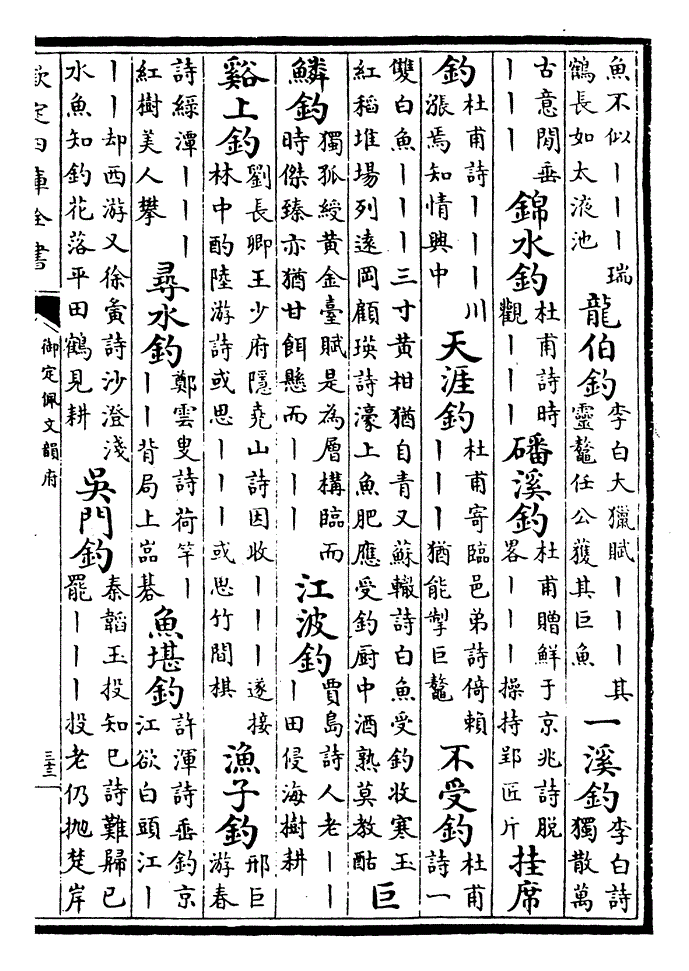 魚不似｜｜｜瑞鶴長如太液池 龍伯釣 李白大獵賦｜｜｜其靈鼇任公獲其巨魚 一溪釣 李白詩獨散萬
古意閒垂｜｜｜ 錦水釣 杜甫詩時觀｜｜｜ 磻溪釣 杜甫贈鮮于京兆詩脫畧｜｜｜操持郢匠斤 挂席
釣 杜甫詩｜｜｜｜川漲焉知情興中 天涯釣 杜甫寄臨邑弟詩倚賴｜｜｜猶能掣巨鼇 不受釣 杜甫詩一
雙白魚｜｜｜三寸黄柑猶自青又蘇轍詩白魚受釣收寒玉紅稻堆場列遠岡顧瑛詩濠上魚肥應受釣厨中酒熟莫教酤 巨
鱗釣 獨孤綬黄金臺賦是為層構臨而時傑臻亦猶甘餌懸而｜｜｜ 江波釣 賈島詩人老｜｜｜田侵海樹耕
谿上釣 劉長卿王少府隱堯山詩因收｜｜｜遂接林中酌陸游詩或思｜｜｜或思竹間棋 漁子釣 邢巨游春
詩緑潭｜｜｜紅樹美人攀 尋水釣 鄭雲叟詩荷竿｜｜｜背局上嵓碁 魚堪釣 許渾詩垂釣京江欲白頭江｜
｜｜却西游又徐夤詩沙澄淺水魚知釣花落平田鶴見耕 吳門釣 秦韜玉投知己詩難歸已罷｜｜｜投老仍抛楚岸
欽定四庫全書
御定佩文韻府